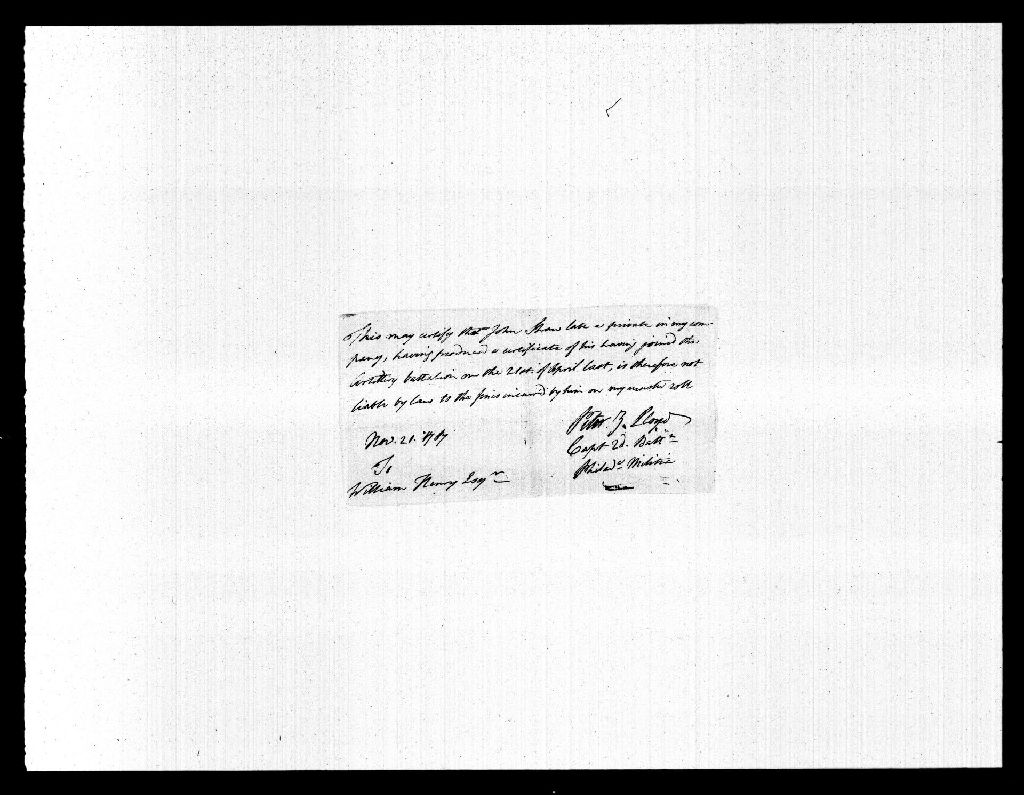 This may certify that John Shaw late a private in my com-
pany, having produced a certificate of his having joined the
Artillery battalion on the 21st. of April last, is therefore not
liable by law to the fines incurred by him on my muster roll
Nov. 21. 1787
Peter Z. Lloyd
Capt 2d. Battn
To
Philada Militia
William Henry Esqr